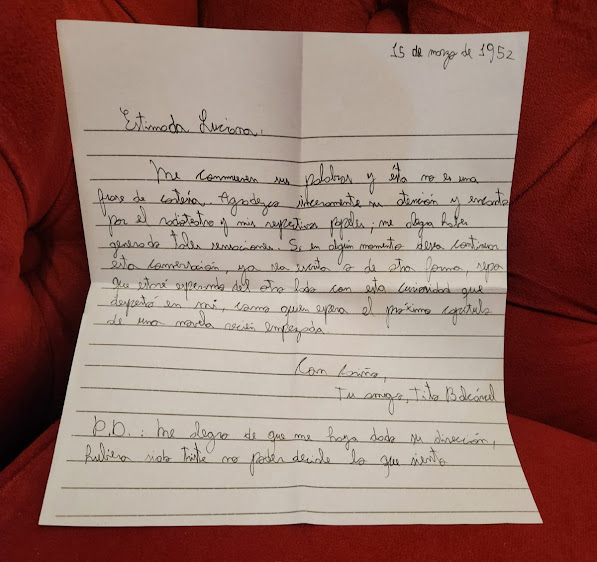 15 de marzo de 1952
Estimada Luciana:
Me conmueven sus palabras y ésta no es una
frase de cortesía. Agradezco sinceramente su atención y encanto
por el radioteatro y mis respectivos papeles; me alegra haber
generado tales sensaciones. Si en algún momento desea continuar
esta conversación, ya sea escrita o de otra forma, sepa
que estaré esperando del otro lado con esta curiosidad que
despertó en mí, como quien espera el próximo capítulo
de una novela recién empezada.
Con cariño,
Tu amigo, Tito
P.D.: Me alegro de que me haya dado su dirección,
hubiera sido triste no poder decirle lo que siento